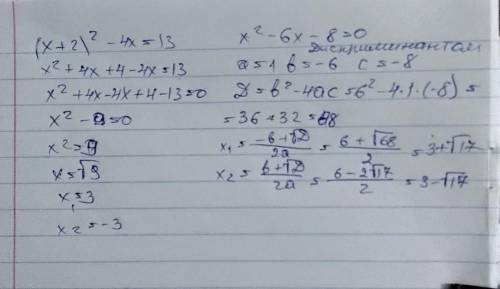 (x+2)² - 4x = 13
x² + 4x + 4 - 4x = 13
x² + 4x - 4x + 4 - 13 = 0
x² - 9 = 0
x² = 9
x = √9
x₁ = 3
x₂ = -3
x² - 6x - 8 = 0
Дискриминантом
a = 1 b = -6 c = -8
D = b² - 4ac = 6² - 4·1·(-8) =
= 36 + 32 = 68
x₁ = (-b + √D)/2a = (6 + √68)/2 = 3 + √17
x₂ = (b + √D)/2a = (6 - 2√17)/2 = 3 - √17